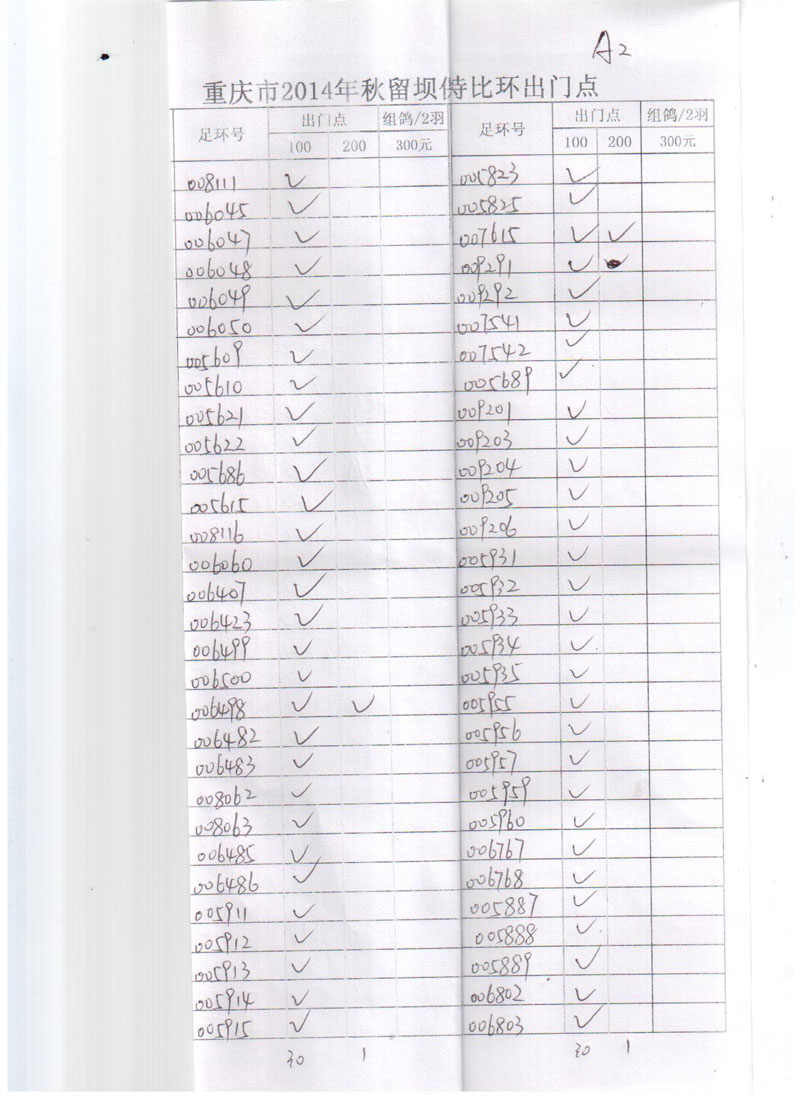 A2
重庆市2014年秋留坝特比环出门点
足环号 出门点 组鸽/2羽 足环号 出门点 组鸽/2羽
100 200 300元 100 200 300元
008111 ✓ 005823 ✓
006045 ✓ 005825 ✓
006047 ✓ 007615 ✓ ✓
006048 ✓ 009291 ✓
006049 ✓ 009292 ✓
006050 ✓ 007541 ✓
005609 ✓ 007542 ✓
005610 ✓ 005689 ✓
005621 ✓ 009201 ✓
005622 ✓ 009203 ✓
005686 ✓ 009204 ✓
005615 ✓ 009205 ✓
008116 ✓ 009206 ✓
006060 ✓ 005931 ✓
006407 ✓ 005932 ✓
006423 ✓ 005933 ✓
006499 ✓ 005934 ✓
006500 ✓ 005935 ✓
006498 ✓ ✓ 005955 ✓
006482 ✓ 005956 ✓
006483 ✓ 005957 ✓
008062 ✓ 005959 ✓
008063 ✓ 005960 ✓
006485 ✓ 006767 ✓
006486 ✓ 006768 ✓
005911 ✓ 005887 ✓
005912 ✓ 005888 ✓
005913 ✓ 005889 ✓
005914 ✓ 006802 ✓
005915 ✓ 006803 ✓
30 1 30 1